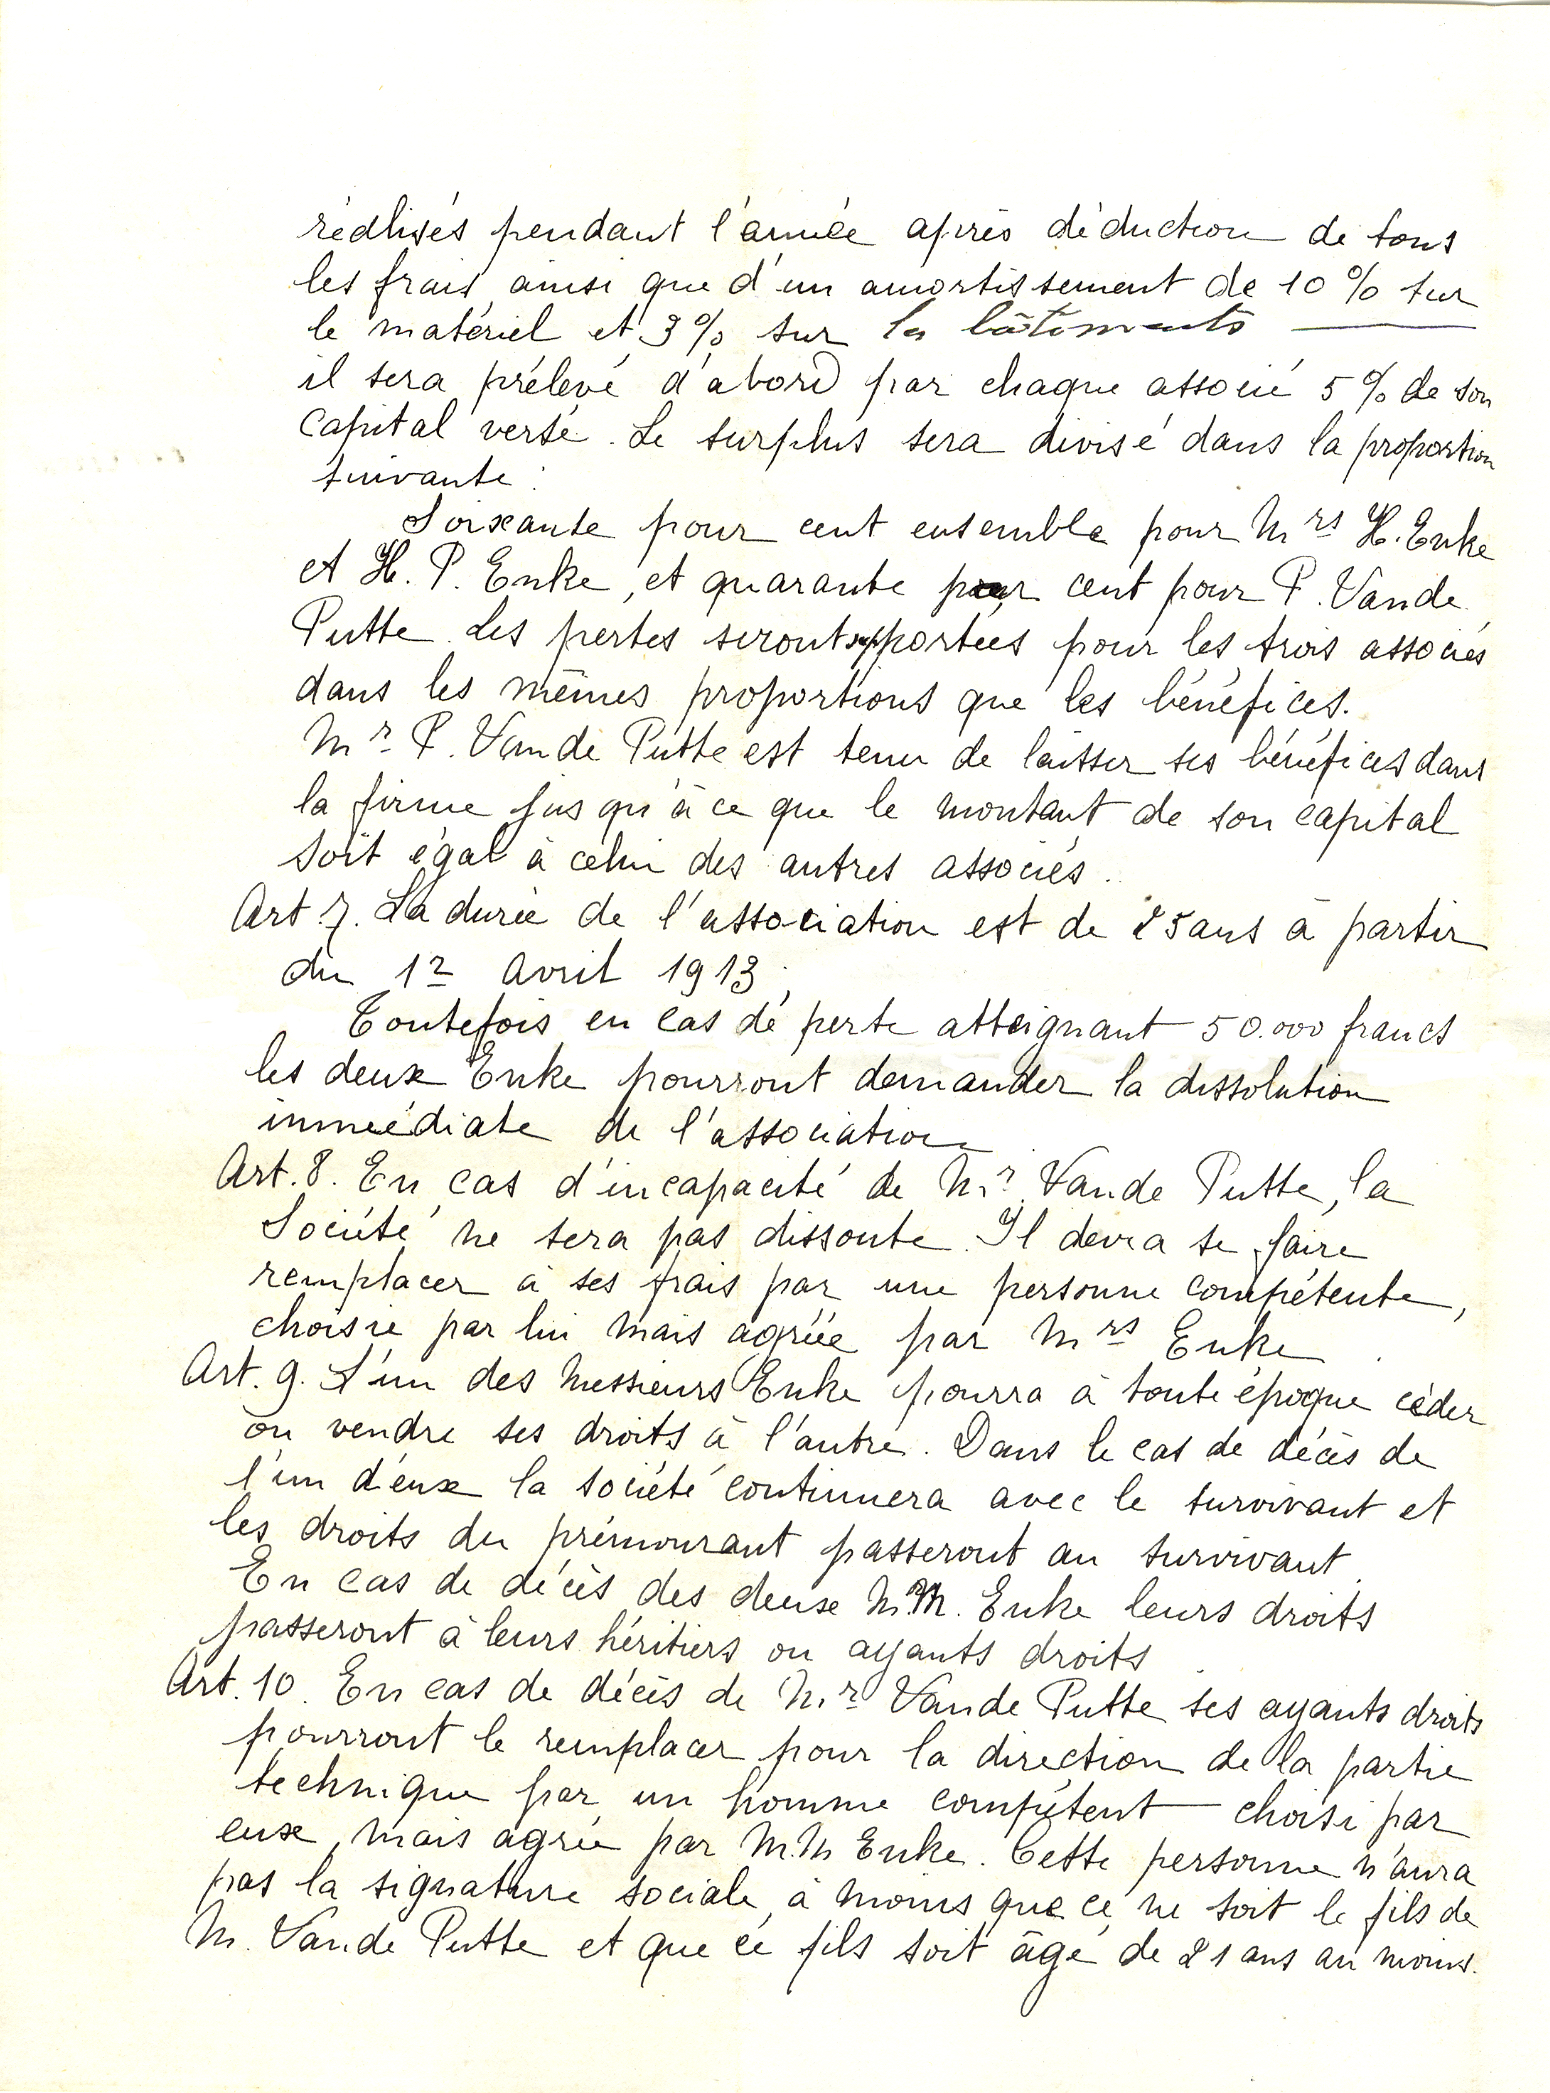 réalisés pendant l'année après déduction de tous
les frais, ainsi que d'un amortissement de 10% sur
le matériel et 3% sur les bâtiments ———
il sera prélevé d'abord par chaque associé 5% de son
capital versé. Le surplus sera divisé dans la proportion
suivante :
Soixante pour cent ensemble pour Mrs H. Enke
et H. P. Enke, et quarante pour cent pour P. Vande
Putte. Les pertes seront supportées pour les trois associés
dans les mêmes proportions que les bénéfices.
Mr P. Vande Putte est tenu de laisser ses bénéfices dans
la firme jusqu'à ce que le montant de son capital
soit égal à celui des autres associés.
Art. 7. La durée de l'association est de 25 ans à partir
du 1r Avril 1913;
Toutefois en cas de perte atteignant 50.000 francs
les deux Enke pourront demander la dissolution
immédiate de l'association
Art. 8. En cas d'incapacité de Mr. Vande Putte, la
Société ne sera pas dissoute. Il devra se faire
remplacer à ses frais par une personne compétente,
choisie par lui mais agréée par Mrs Enke.
Art. 9. L'un des Messieurs Enke pourra à toute époque céder
ou vendre ses droits à l'autre. Dans le cas de décès de
l'un d'eux la société continuera avec le survivant et
les droits du prémourant passeront au survivant.
En cas de décès des deux M.M. Enke leurs droits
passeront à leurs héritiers ou ayants droits.
Art. 10. En cas de décès de Mr Vande Putte ses ayants droits
pourront le remplacer pour la direction de la partie
technique par un homme compétent choisi par
eux, mais agréé par M.M Enke. Cette personne n'aura
pas la signature sociale, à moins que ce ne soit le fils de
M. Vande Putte et que ce fils soit âgé de 21 ans au moins.